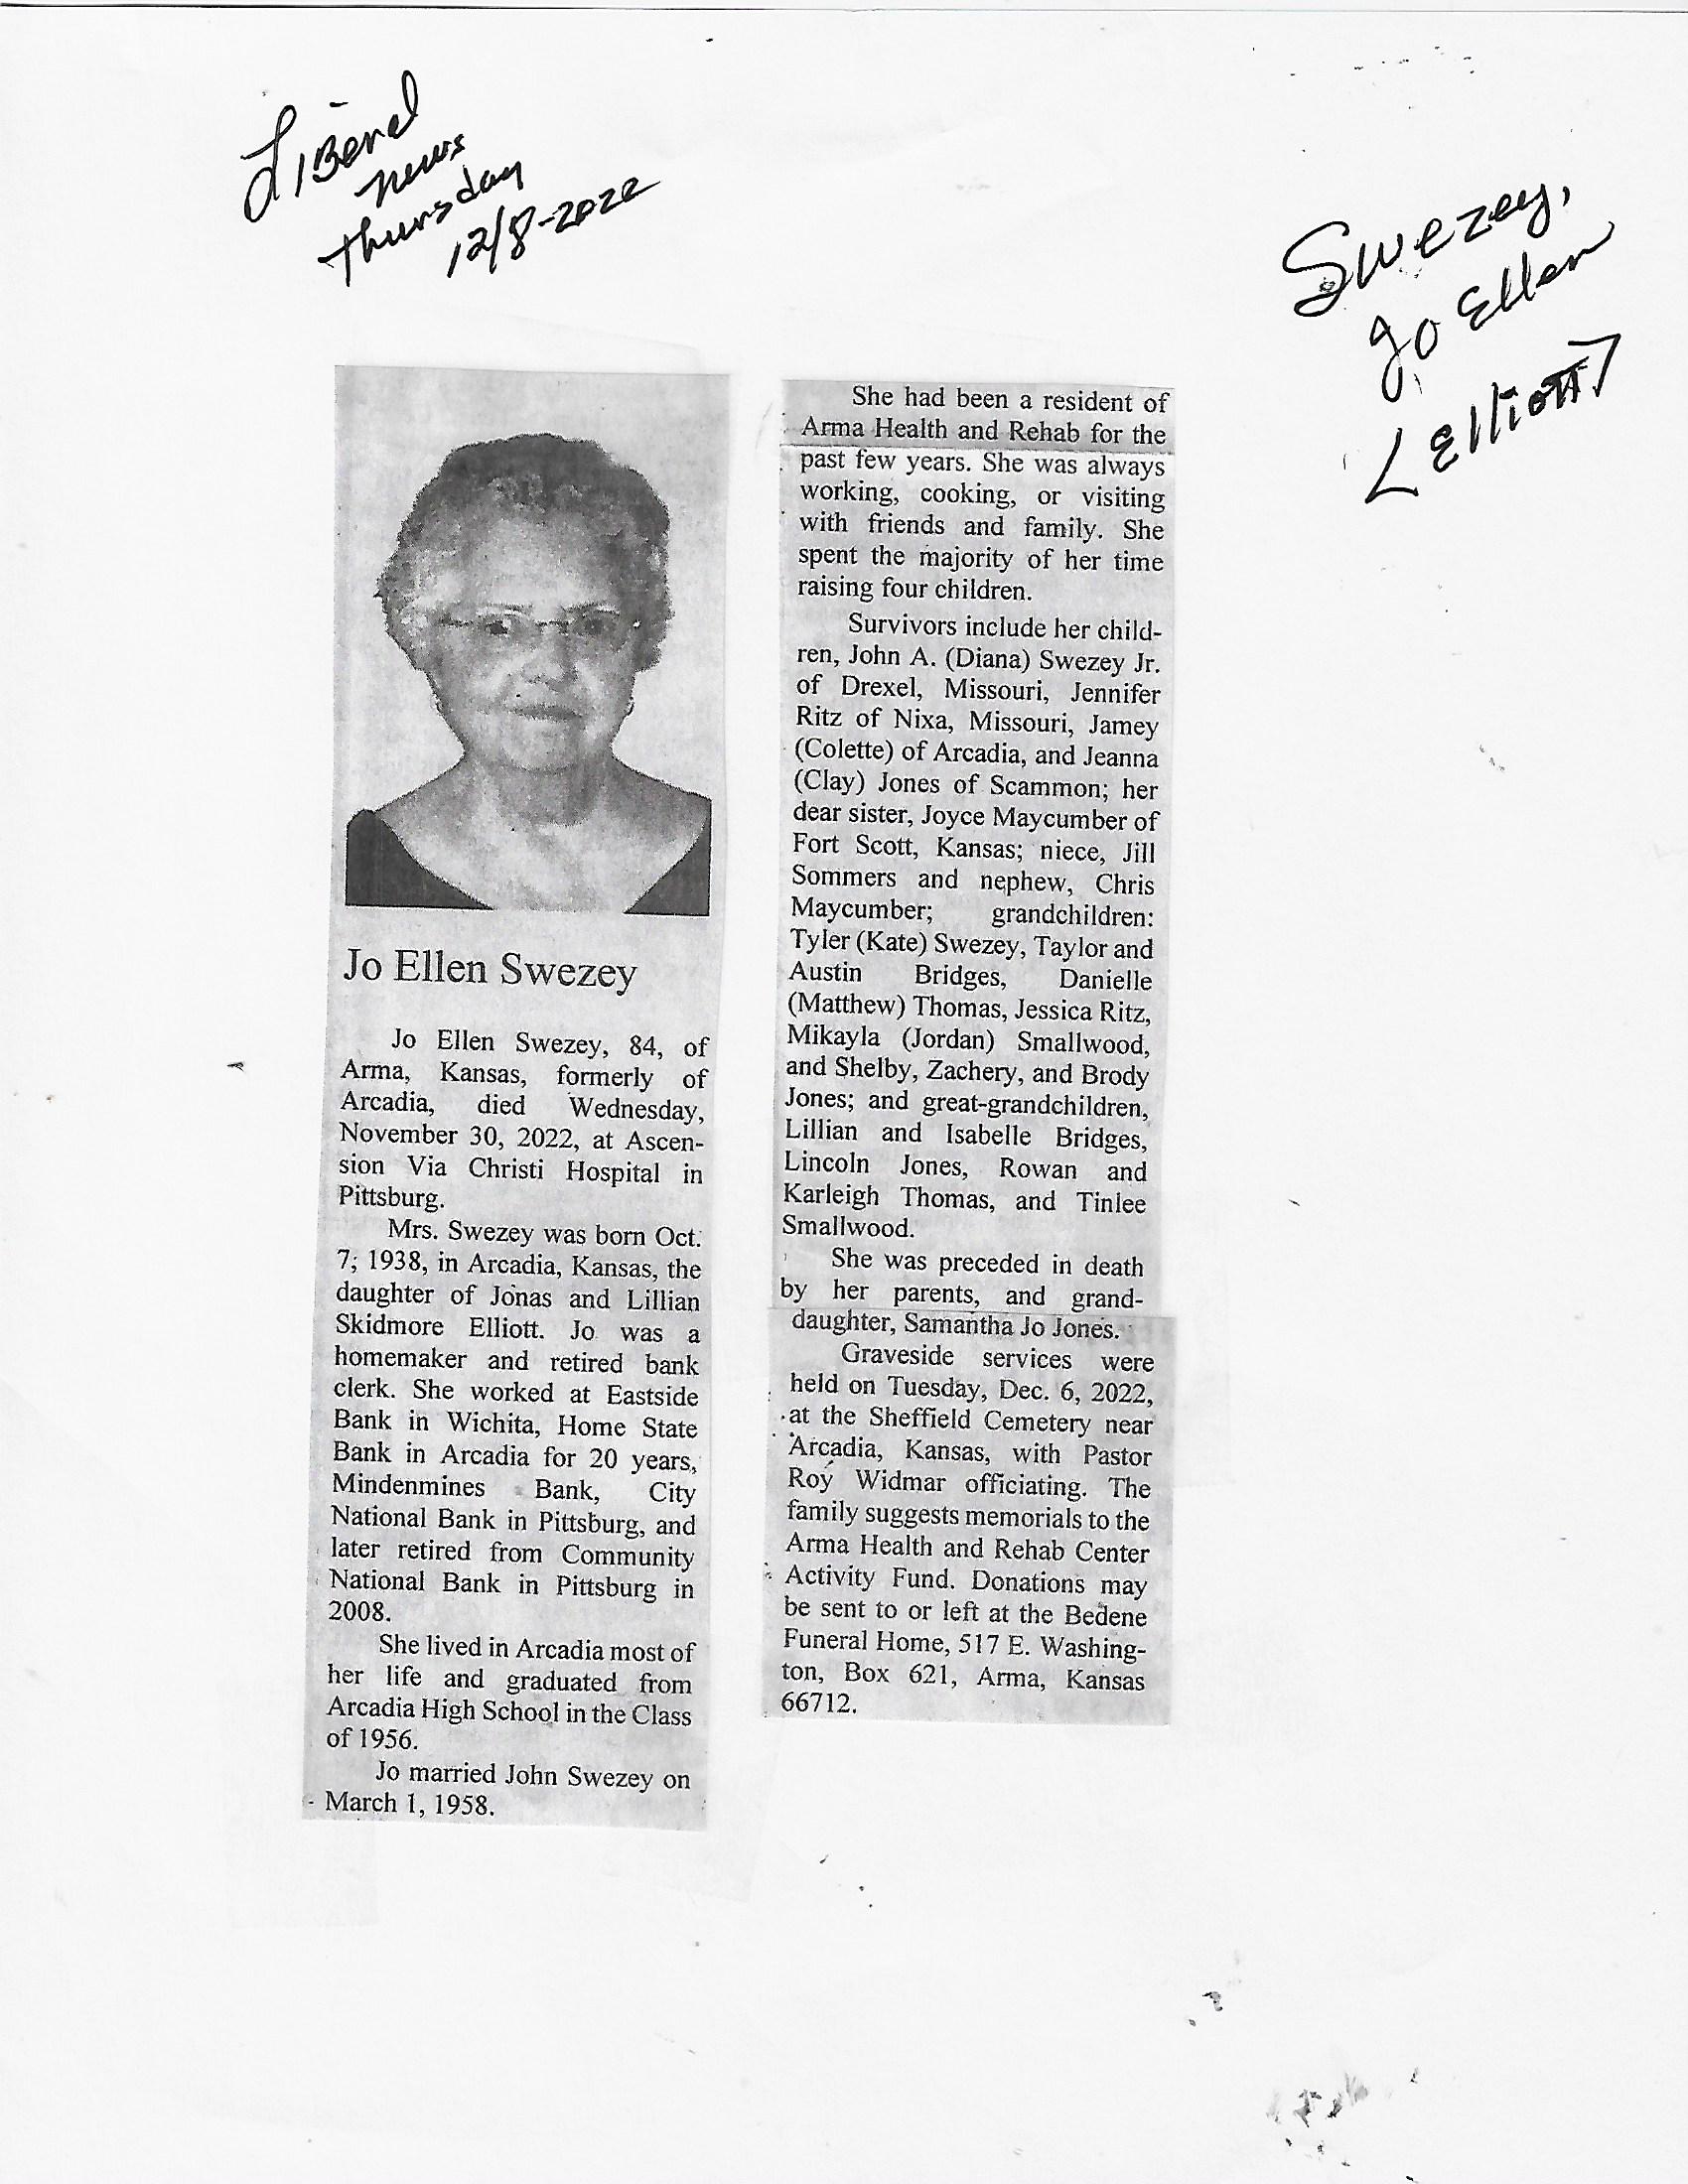 Liberal
News
Thursday
12/8-2022
Swezey,
Jo Ellen
<Elliott>
Jo Ellen Swezey
Jo Ellen Swezey, 84, of
Arma, Kansas, formerly of
Arcadia, died Wednesday,
November 30, 2022, at Ascen-
sion Via Christi Hospital in
Pittsburg.
Mrs. Swezey was born Oct.
7; 1938, in Arcadia, Kansas, the
daughter of Jonas and Lillian
Skidmore Elliott. Jo was a
homemaker and retired bank
clerk. She worked at Eastside
Bank in Wichita, Home State
Bank in Arcadia for 20 years,
Mindenmines Bank, City
National Bank in Pittsburg, and
later retired from Community
National Bank in Pittsburg in
2008.
She lived in Arcadia most of
her life and graduated from
Arcadia High School in the Class
of 1956.
Jo married John Swezey on
March 1, 1958.
She had been a resident of
Arma Health and Rehab for the
past few years. She was always
working, cooking, or visiting
with friends and family. She
spent the majority of her time
raising four children.
Survivors include her child-
ren, John A. (Diana) Swezey Jr.
of Drexel, Missouri, Jennifer
Ritz of Nixa, Missouri, Jamey
(Colette) of Arcadia, and Jeanna
(Clay) Jones of Scammon; her
dear sister, Joyce Maycumber of
Fort Scott, Kansas; niece, Jill
Sommers and nephew, Chris
Maycumber; grandchildren:
Tyler (Kate) Swezey, Taylor and
Austin Bridges, Danielle
(Matthew) Thomas, Jessica Ritz,
Mikayla (Jordan) Smallwood,
and Shelby, Zachery, and Brody
Jones; and great-grandchildren,
Lillian and Isabelle Bridges,
Lincoln Jones, Rowan and
Karleigh Thomas, and Tinlee
Smallwood.
She was preceded in death
by her parents, and grand-
daughter, Samantha Jo Jones.
Graveside services were
held on Tuesday, Dec. 6, 2022,
at the Sheffield Cemetery near
Arcadia, Kansas, with Pastor
Roy Widmar officiating. The
family suggests memorials to the
Arma Health and Rehab Center
Activity Fund. Donations may
be sent to or left at the Bedene
Funeral Home, 517 E. Washing-
ton, Box 621, Arma, Kansas
66712.